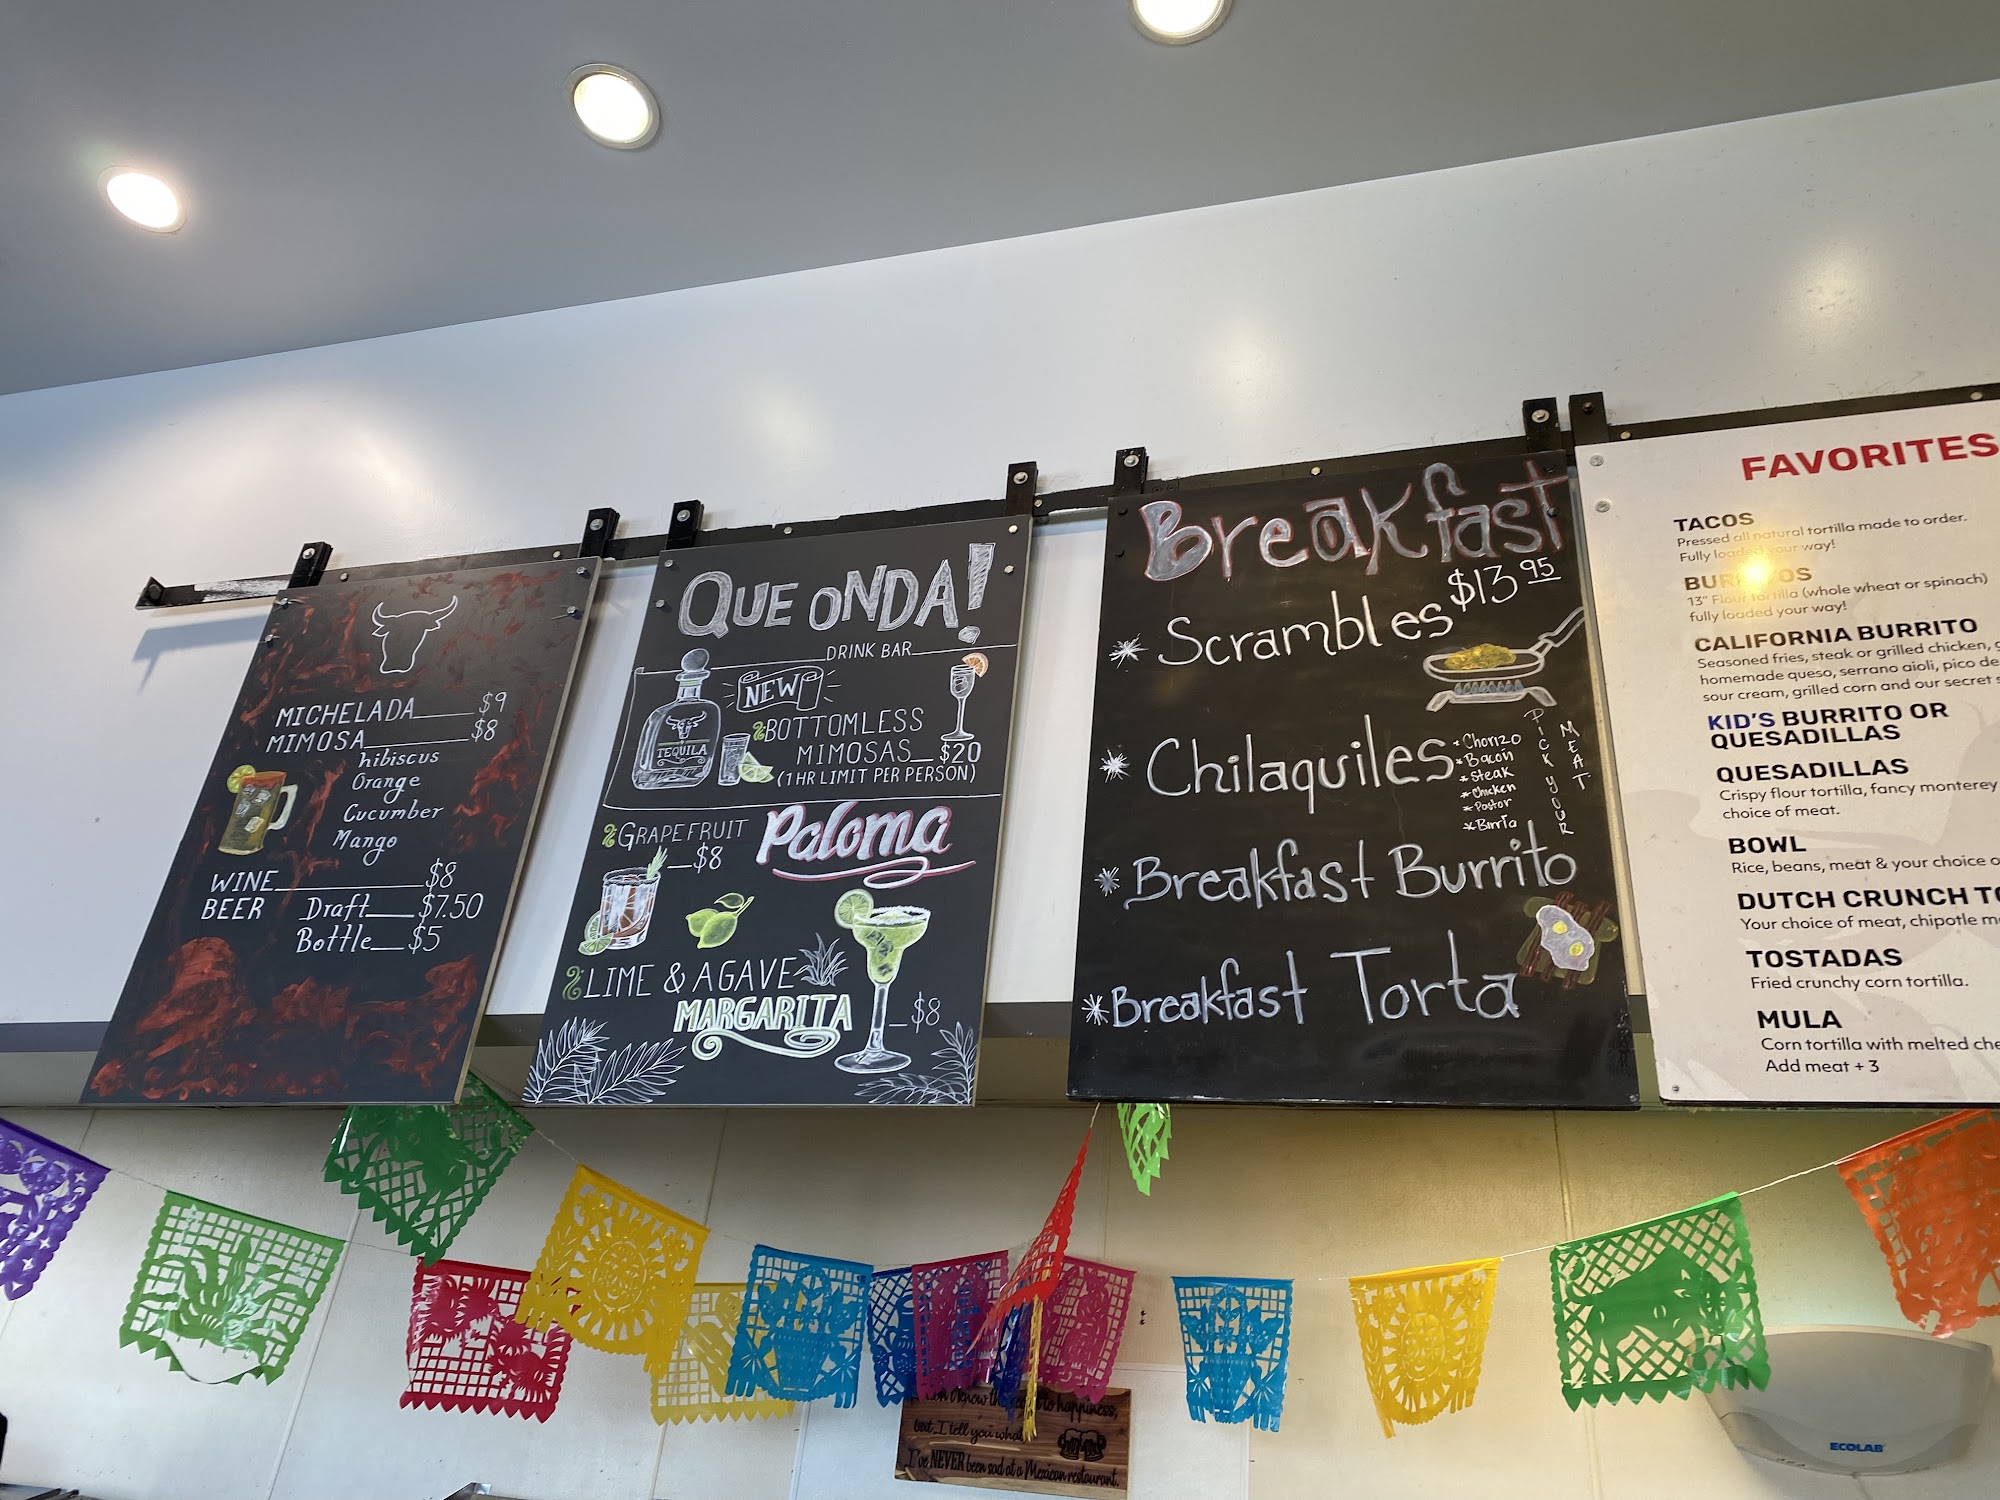 MICHELADA $9
MIMOSA $8
hibiscus
Orange
Cucumber
Mango
WINE $8
BEER Draft $7.50
Bottle $5
QUE ONDA!
DRINK BAR
NEW
TEQUILA
BOTTOMLESS
MIMOSAS $20
(1 HR LIMIT PER PERSON)
GRAPEFRUIT Paloma
$8
LIME & AGAVE
MARGARITA $8
Breakfast
$13.95
* Scrambles
* Chilaquiles
* Chorizo
* Bacon
* Steak
* Chicken
* Pastor
* Birria
PICK YOUR
MEAT
* Breakfast Burrito
* Breakfast Torta
FAVORITES
TACOS
Pressed all natural tortilla made to order.
Fully loaded your way!
BURRITOS
13" Flour tortilla (whole wheat or spinach)
fully loaded your way!
CALIFORNIA BURRITO
Seasoned fries, steak or grilled chicken,
homemade queso, serrano aioli, pico de
sour cream, grilled corn and our secret
KID'S BURRITO OR
QUESADILLAS
QUESADILLAS
Crispy flour tortilla, fancy monterey
choice of meat.
BOWL
Rice, beans, meat & your choice
DUTCH CRUNCH
Your choice of meat, chipotle
TOSTADAS
Fried crunchy corn tortilla.
MULA
Corn tortilla with melted
Add meat + 3
know the to happiness,
but I tell you what
I've NEVER been sad at a Mexican restaurant.
ECOLAB